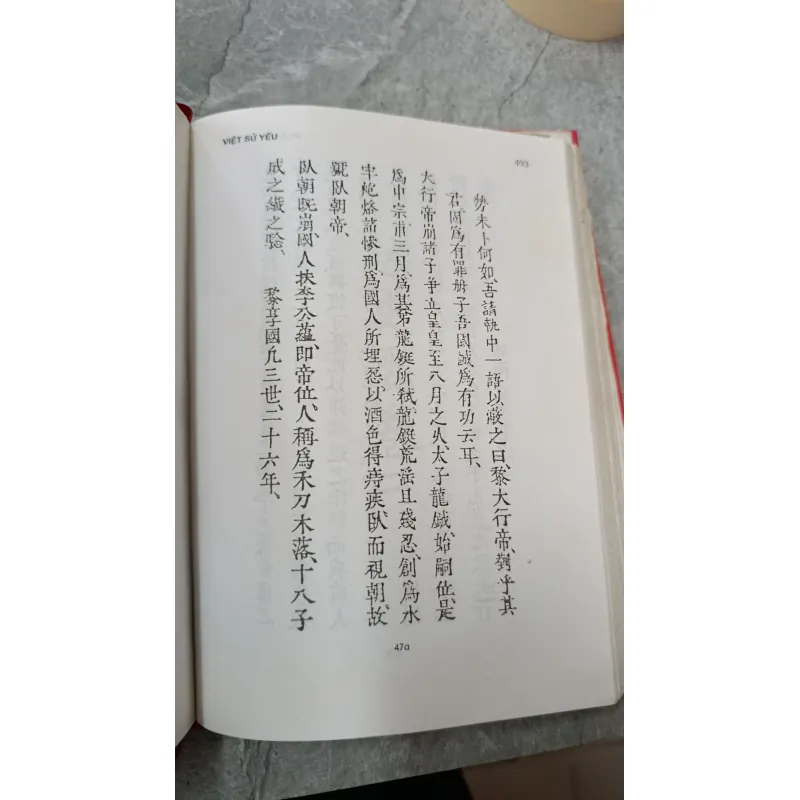 VIỆT SỬ YẾU
493
勢未卜何如、吾請執中一語以蔽之曰、黎大行帝、對乎其
君固爲有罪臣子、吾國誠爲有功云耳、
大行帝崩諸子爭立、皇皇至八月之久、太子龍鉞、始嗣位、是
爲中宗、甫三月、爲其弟龍鋌所弒、龍鋌荒淫且殘忍、創爲水
牢炮烙諸慘刑、爲國人所埋怨、以酒色得痔疾、臥而視朝、故
號臥朝帝、
臥朝既崩、國人扶李公蘊、即帝位、人稱爲禾刀木落、十八子
成之讖之驗、 黎享國凡三世、二十六年、
47a